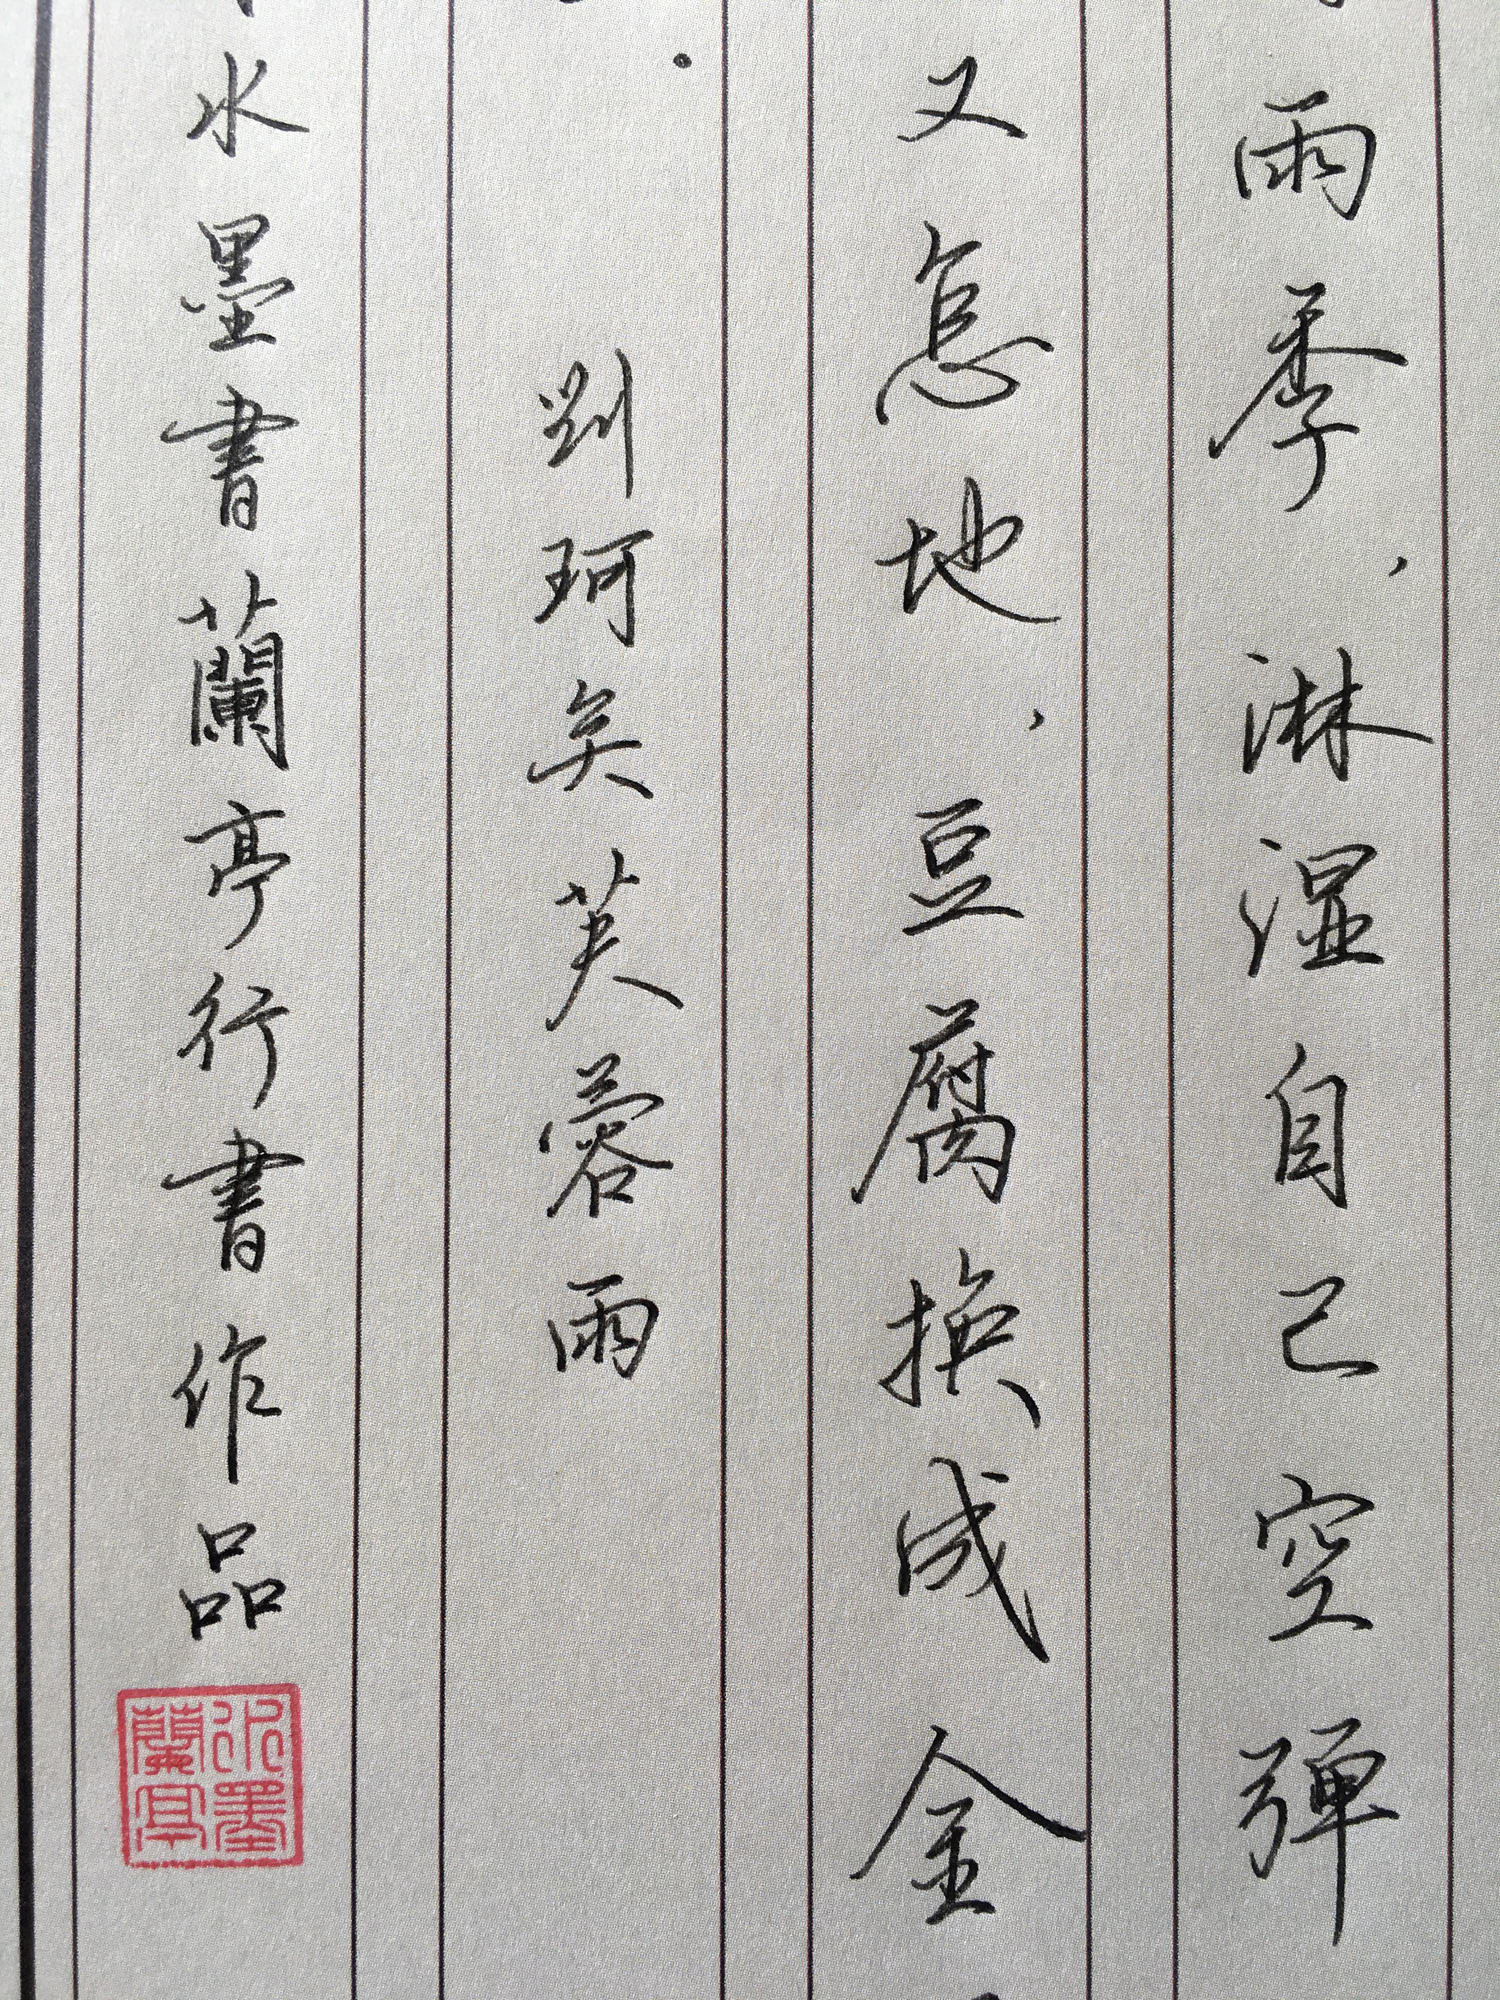 雨季，淋湿自己空弹
又怎地，豆腐换成金
劉珂矣芙蓉雨
水墨書蘭亭行書作品
水墨蘭亭